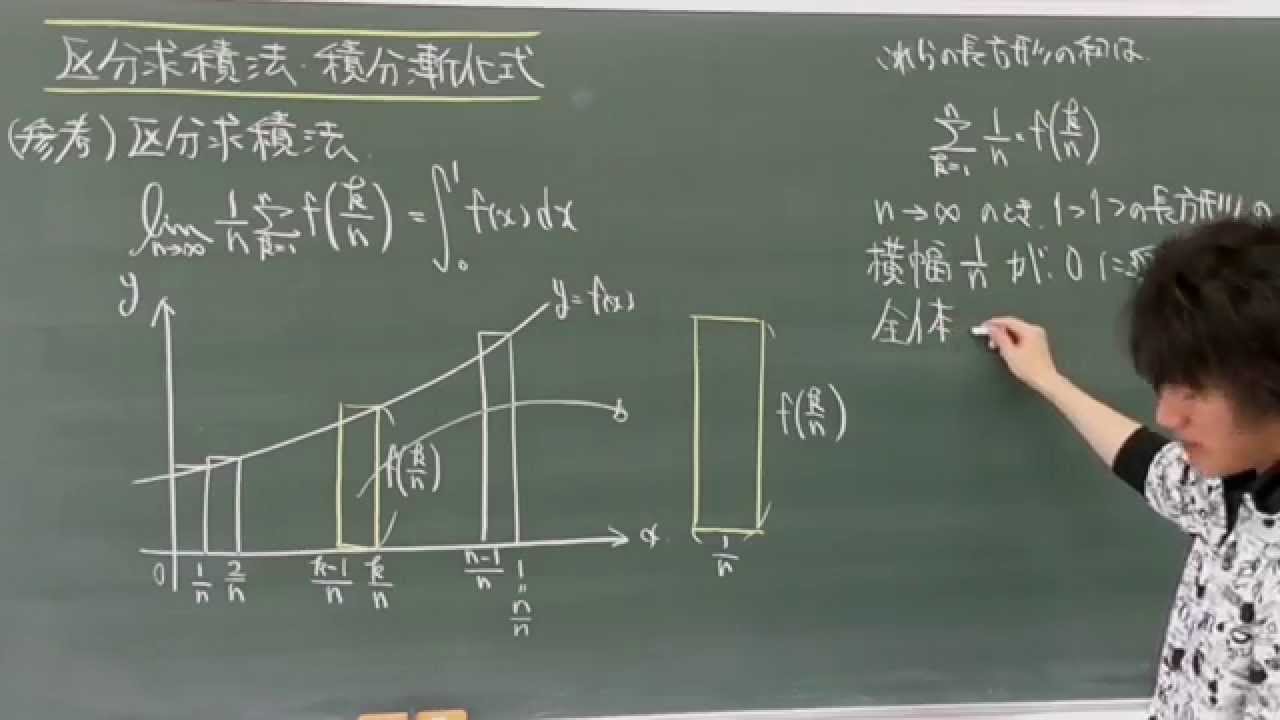 区分求積法・積分漸化式
(参考) 区分求積法
lim n→∞ 1/n Σ k=1 n f(k/n) = ∫ 0 1 f(x)dx
y
y=f(x)
f(k/n)
0 1/n 2/n k-1/n k/n n-1/n 1 x
=
n/n
f(k/n)
1/n
これらの長方形の和は
Σ k=1 n 1/n・f(k/n)
n→∞ のとき、1つ1つの長方形の
横幅 1/n が、0に
全体